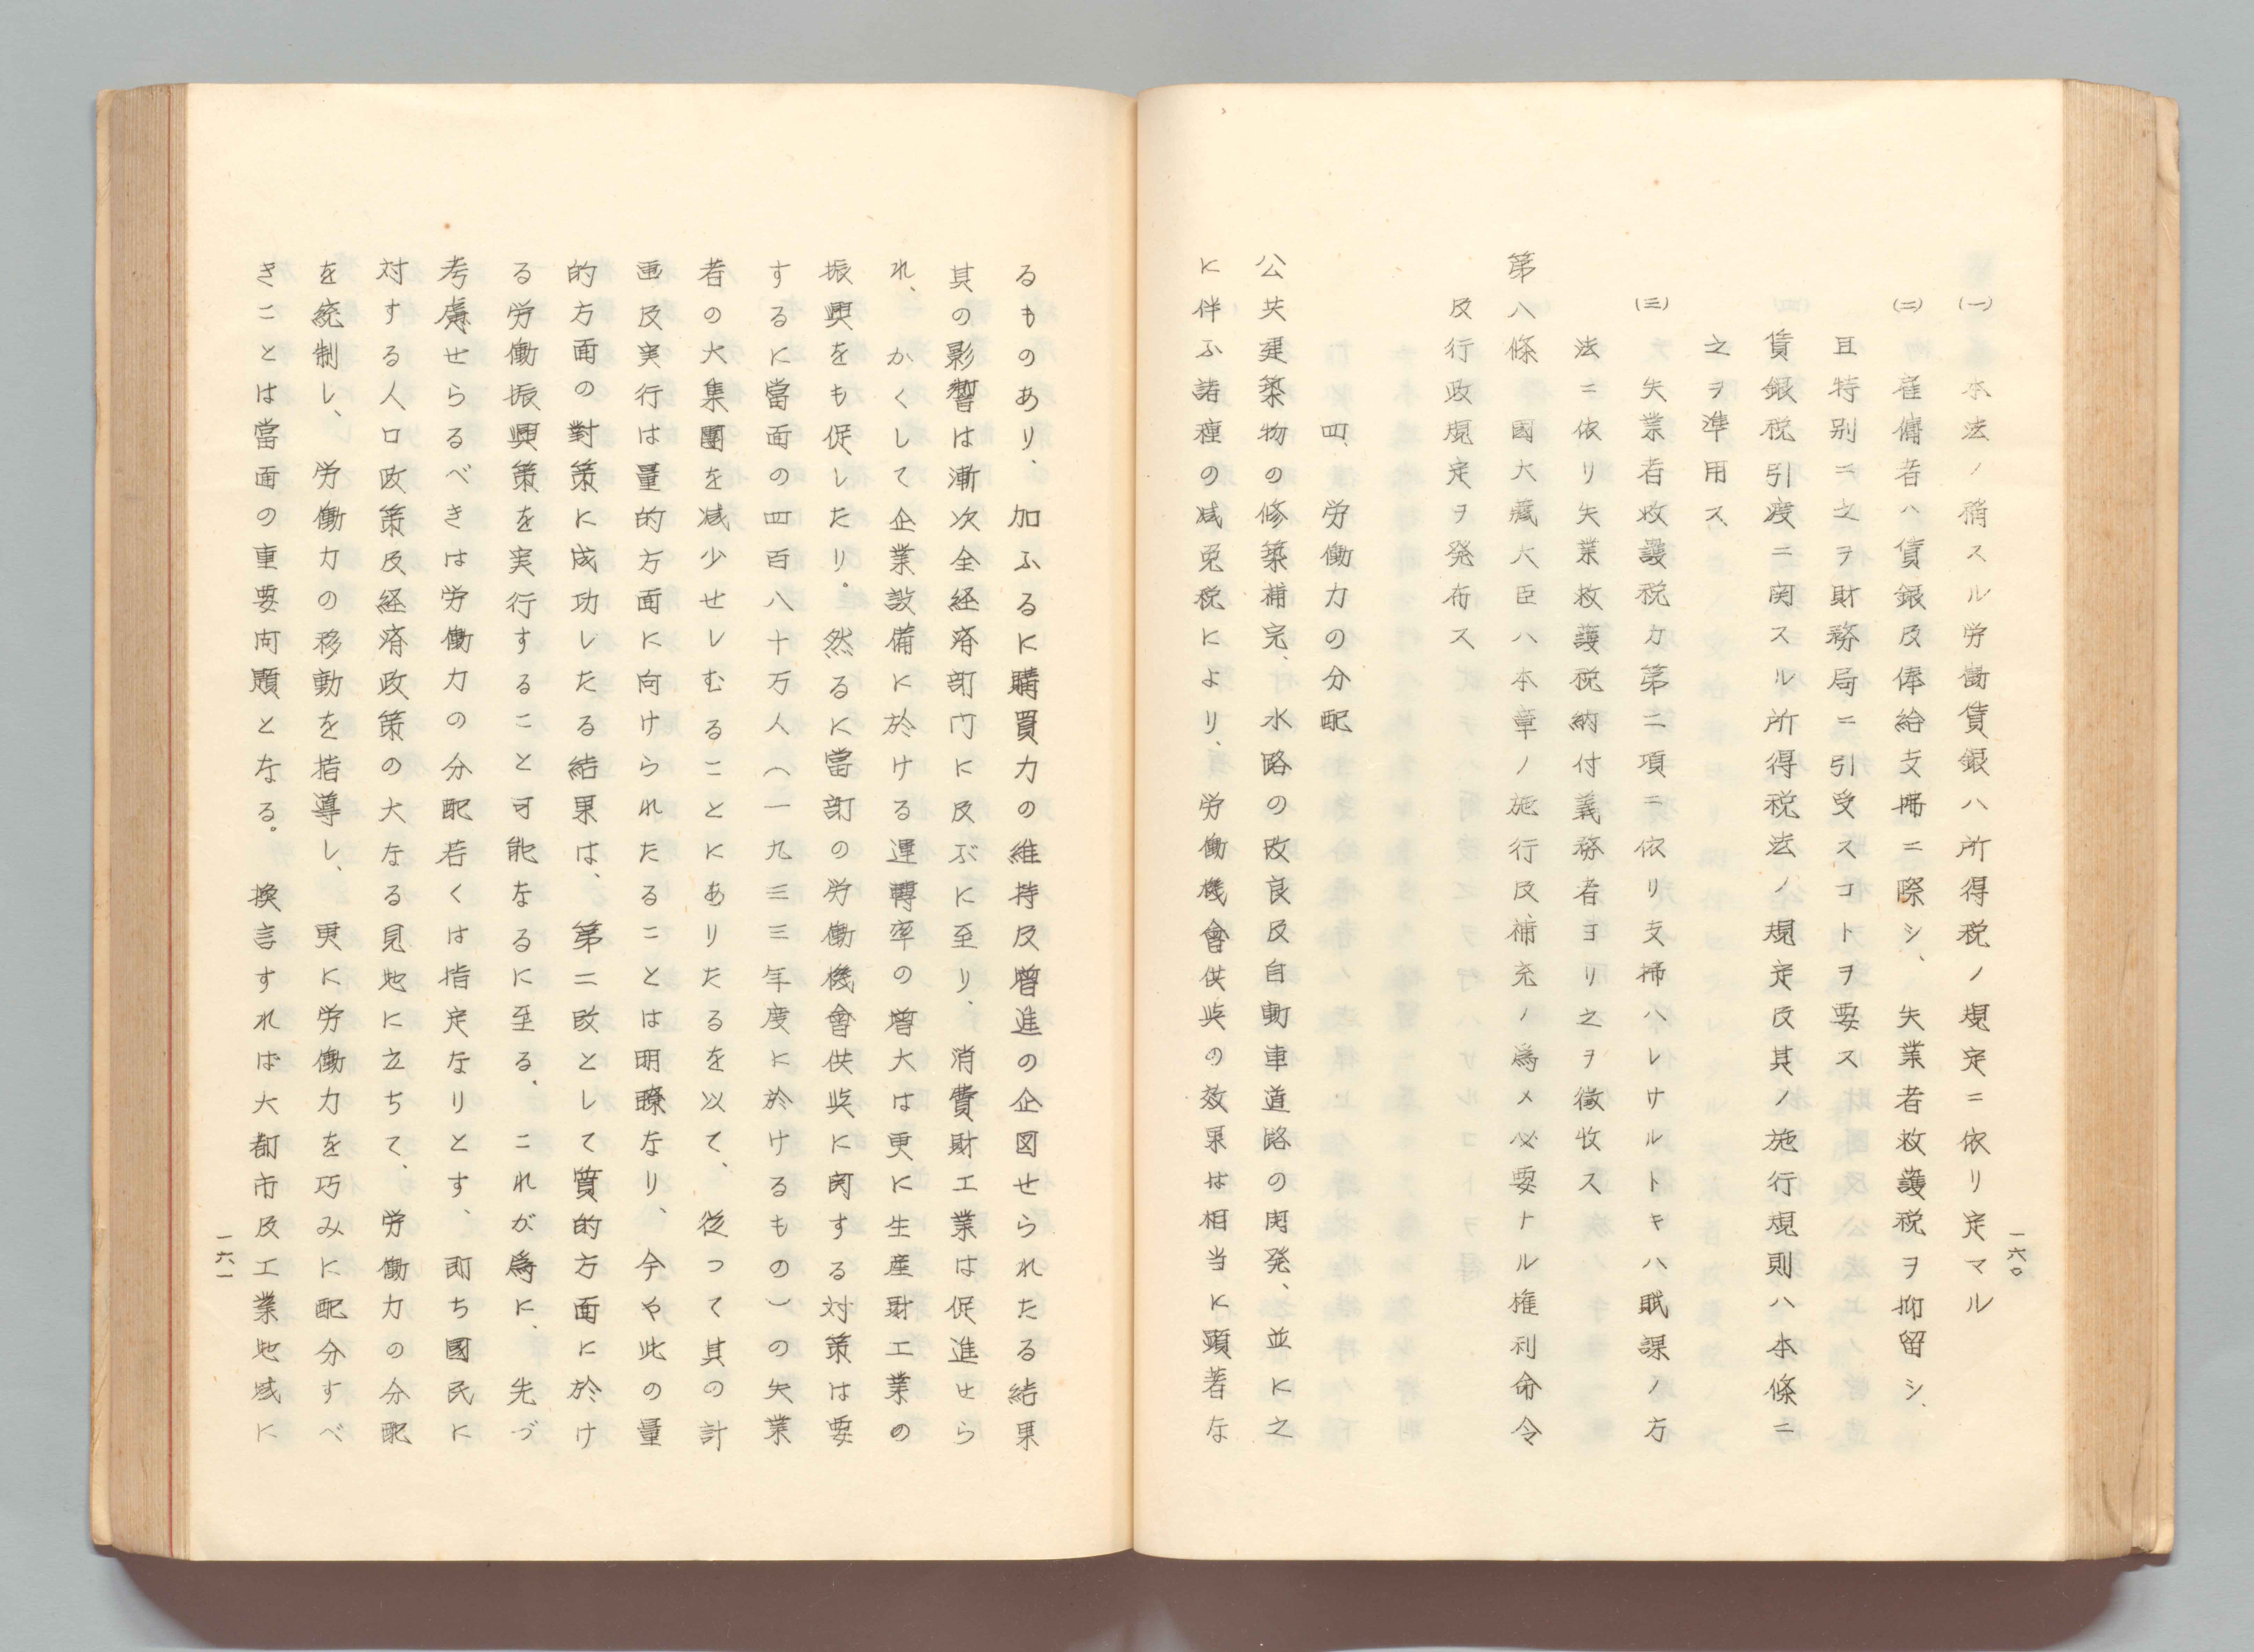 一六〇
(一) 本法ノ稱スル労働賃銀ハ所得税ノ規定ニ依リ定マル
(二) 雇傭者ハ賃銀及俸給支拂ニ際シ、失業者救護税ヲ抑留シ、
且特別ニ之ヲ財務局ニ引受スコトヲ要ス
賃銀税引渡ニ関スル所得税法ノ規定及其ノ施行規則ハ本條ニ
之ヲ準用ス
(三) 失業者救護税カ第二項ニ依リ支拂ハレサルトキハ賦課ノ方
法ニ依リ失業救護税納付義務者ヨリ之ヲ徴收ス
第八條 國大藏大臣ハ本章ノ施行及補充ノ爲メ必要ナル権利命令
及行政規定ヲ発布ス
四、労働力の分配
公共建築物の修築補完、水路の改良及自動車道路の開発、並に之
に伴ふ諸種の減免税により、労働機會供與の效果は相当に顕著な
るものあり、加ふるに購買力の維持及増進の企図せられたる結果
其の影響は漸次全経済部門に及ぶに至り、消費財工業は促進せら
れ、かくして企業設備に於ける運轉率の増大は更に生産財工業の
振興をも促したり。然るに當部の労働機會供與に関する対策は要
するに當面の四百八十万人（一九三三年度に於けるもの）の失業
者の大集團を減少せしむることにありたるを以て、従つて其の計
画及実行は量的方面に向けられたることは明瞭なり、今や此の量
的方面の對策に成功したる結果は、第二段として質的方面に於け
る労働振興策を実行すること可能なるに至る。これが爲に、先づ
考慮せらるべきは労働力の分配若くは指定なりとす、即ち國民に
対する人口政策及経済政策の大なる見地に立ちて、労働力の分配
を統制し、労働力の移動を指導し、更に労働力を巧みに配分すべ
きことは當面の重要問題となる。換言すれば大都市及工業地域に
一六一